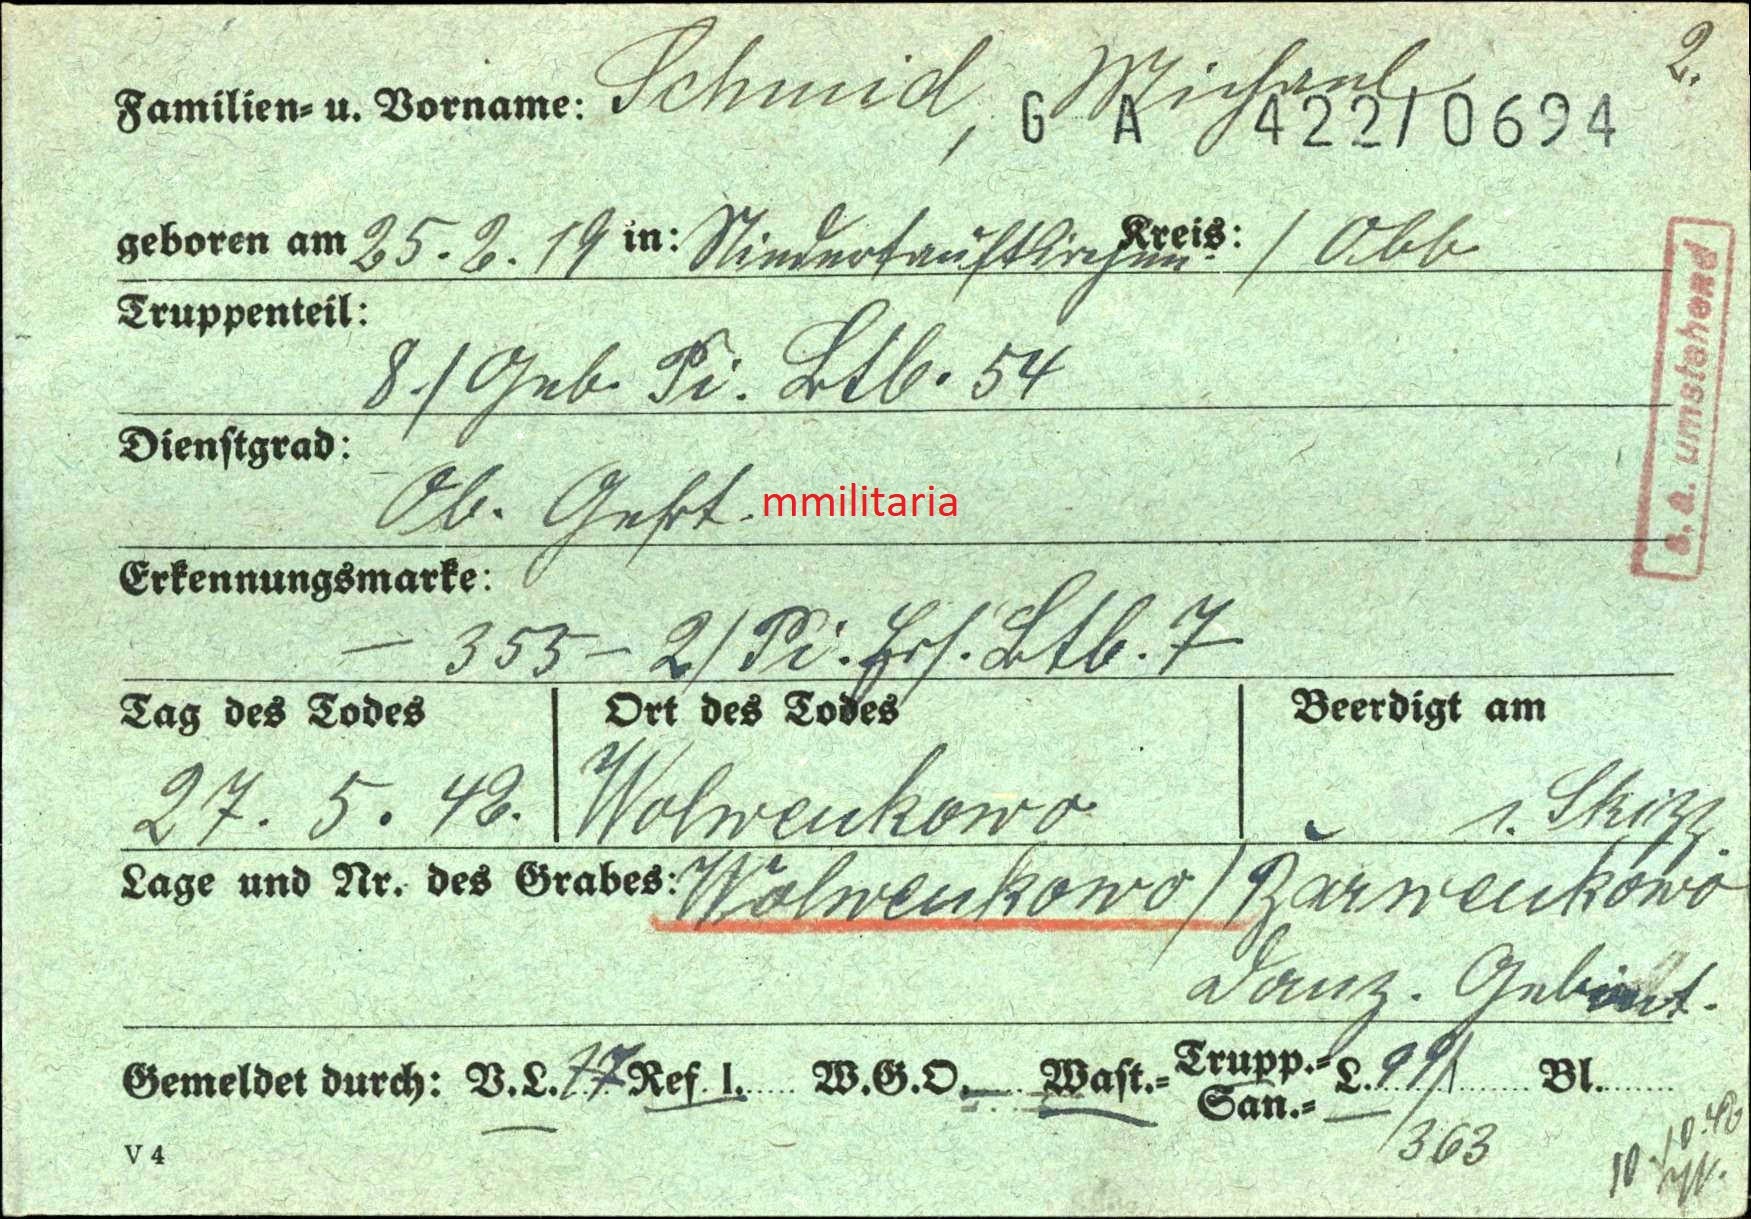 2.
Familien= u. Vorname: Schmid, Michael
G A 422/0694
geboren am 25.2.19 in: Niedertaufkirchen Kreis: / Obb
Truppenteil:
8./Geb. Pi. Btl. 54
Dienstgrad:
Ob. Gefrt.
mmilitaria
Erkennungsmarke:
– 355 – 2/Pi. Ers. Btl. 7
Tag des Todes Ort des Todes Beerdigt am
27. 5. 42. Wolwenkowo s. Skizz.
Lage und Nr. des Grabes: Wolwenkowo / Barwenkowo
Donz. Gebiet.
Gemeldet durch: V.L. 17 Ref. I. W.G.O. Wast.= Trupp.= San.= L. 99/ Bl.
363
V 4
10.10.42
s. a. umstehend